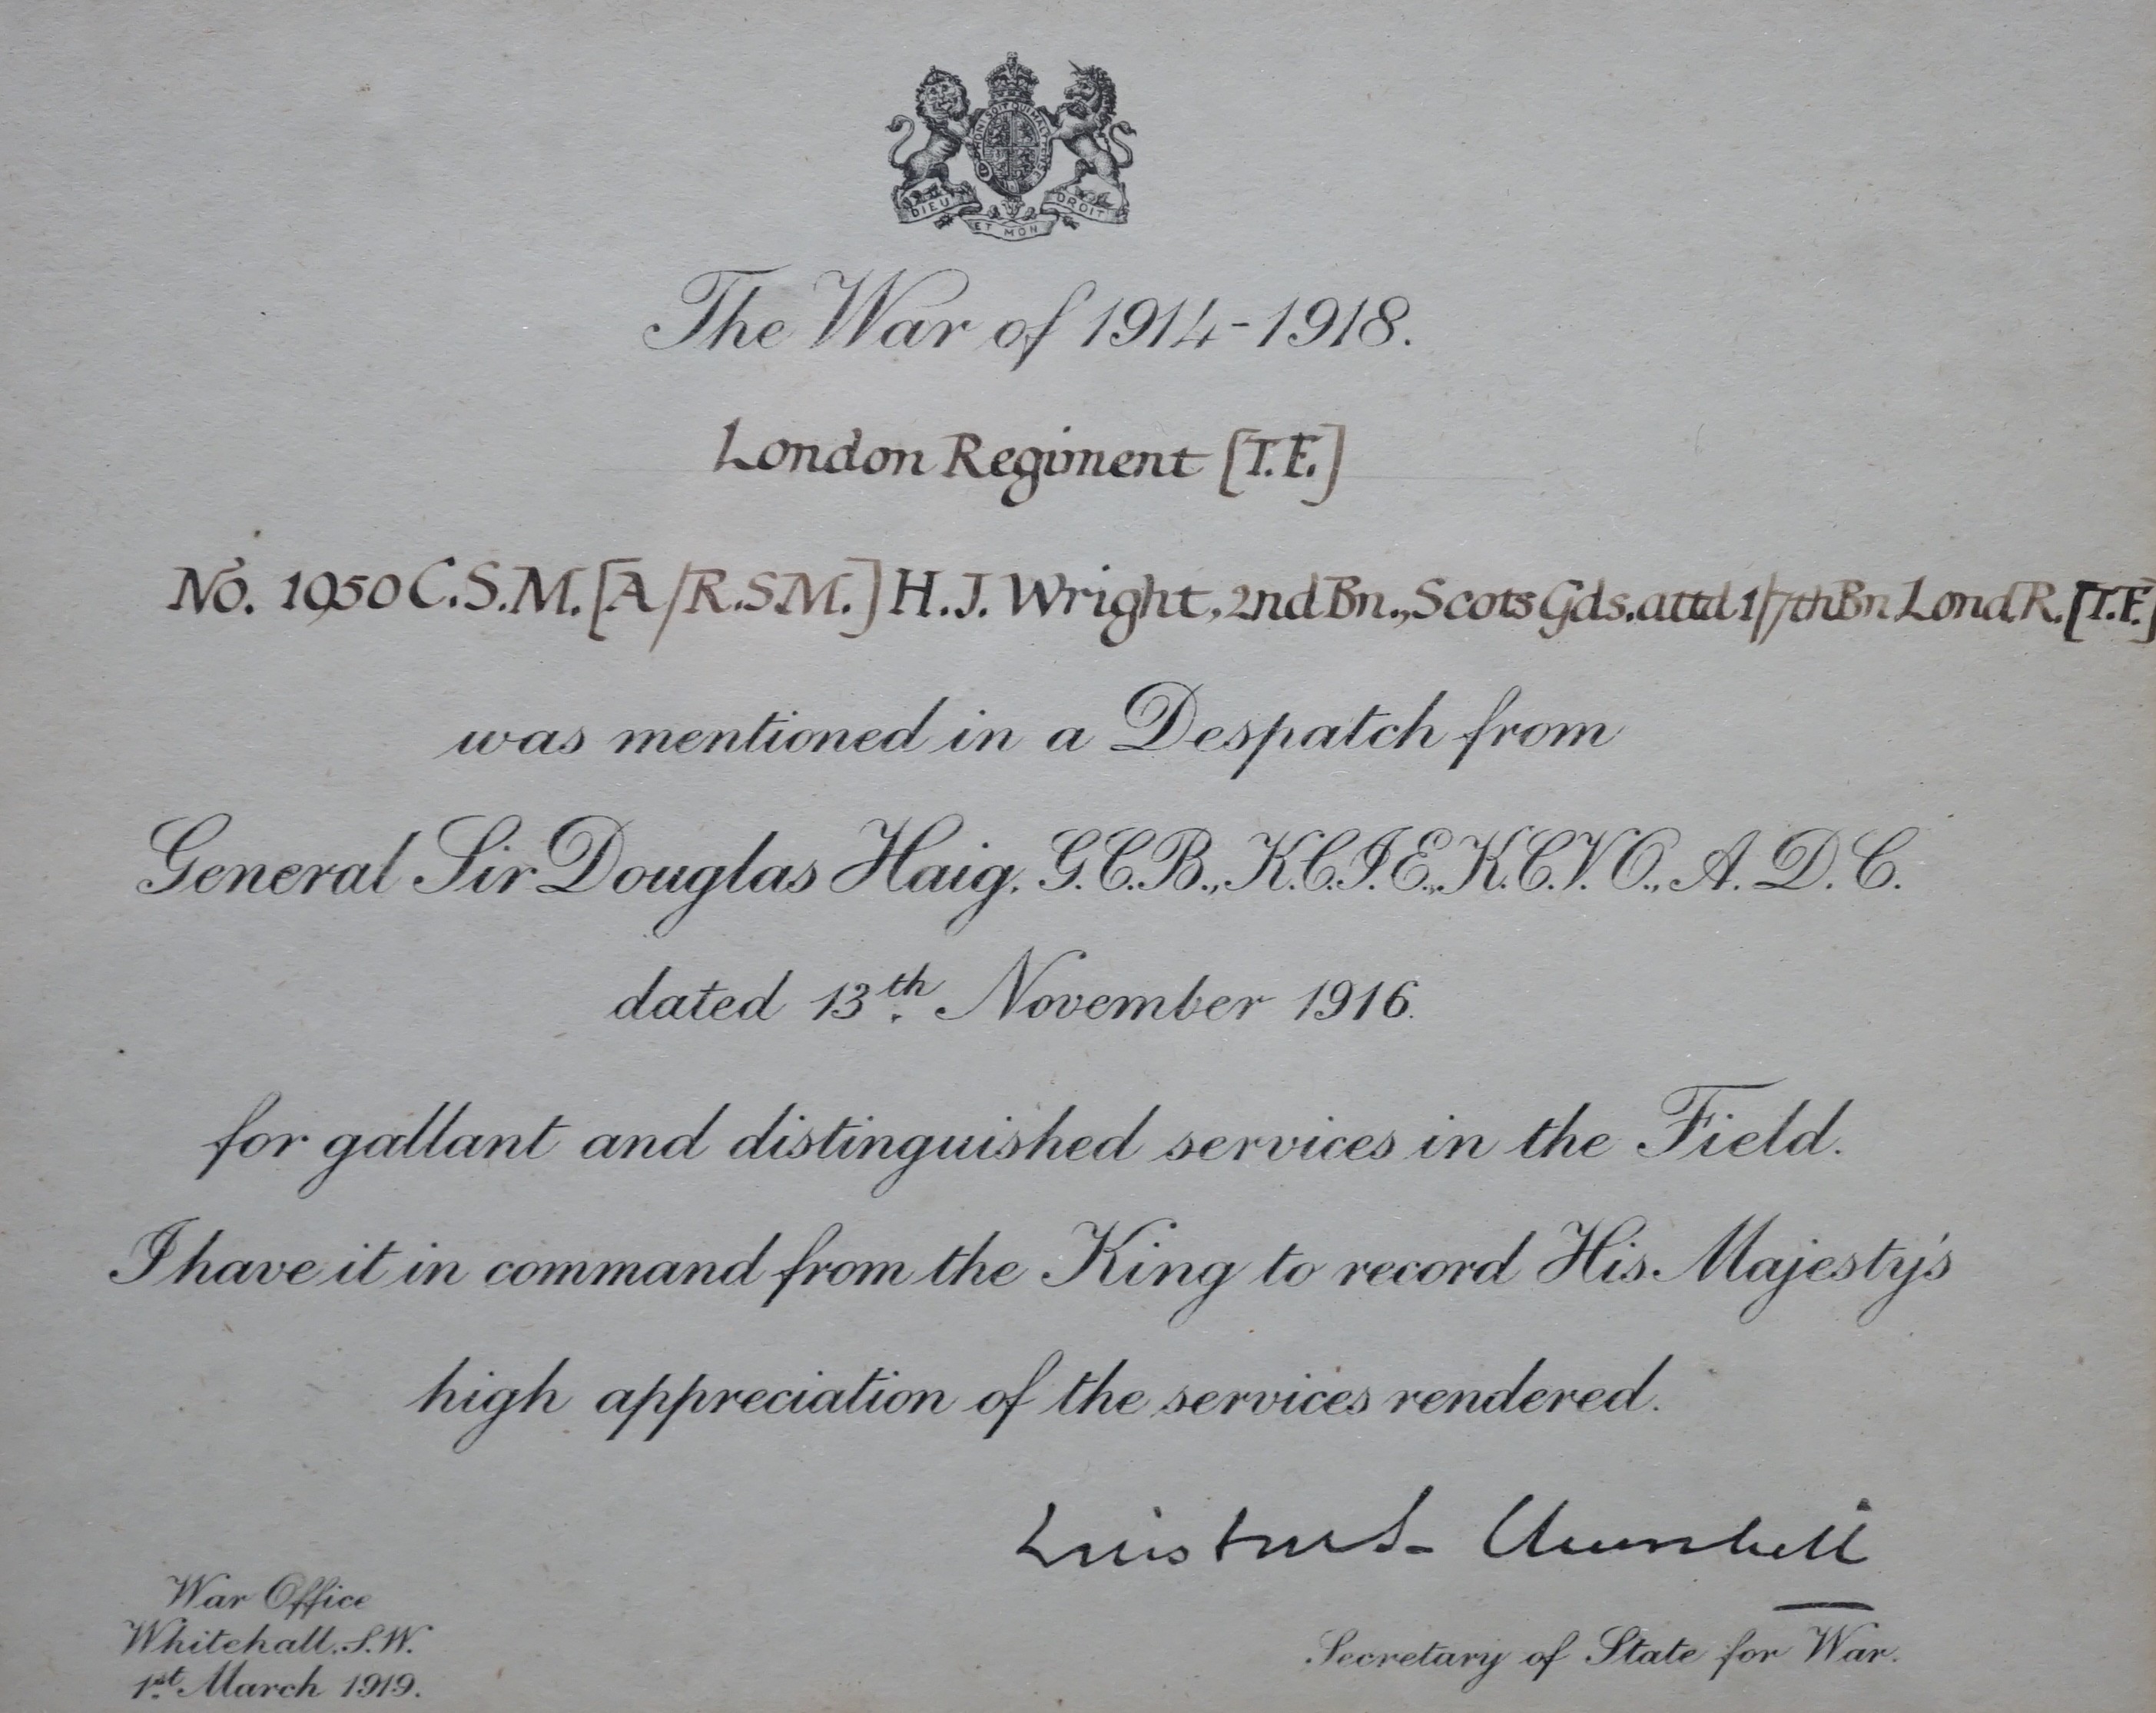 HONI SOIT QUI MAL Y PENSE
DIEU ET MON DROIT
The War of 1914-1918.
London Regiment [T.F.]
No. 1950 C.S.M. [A/R.S.M.] H. J. Wright, 2nd Bn., Scots Gds. attd 1/7th Bn Lond. R. [T.F.]
was mentioned in a Despatch from
General Sir Douglas Haig, G.C.B., K.C.I.E., K.C.V.O., A.D.C.
dated 13th November 1916.
for gallant and distinguished services in the Field.
I have it in command from the King to record His Majesty's
high appreciation of the services rendered.
Winston S. Churchill
Secretary of State for War.
War Office
Whitehall. S.W.
1st March 1919.